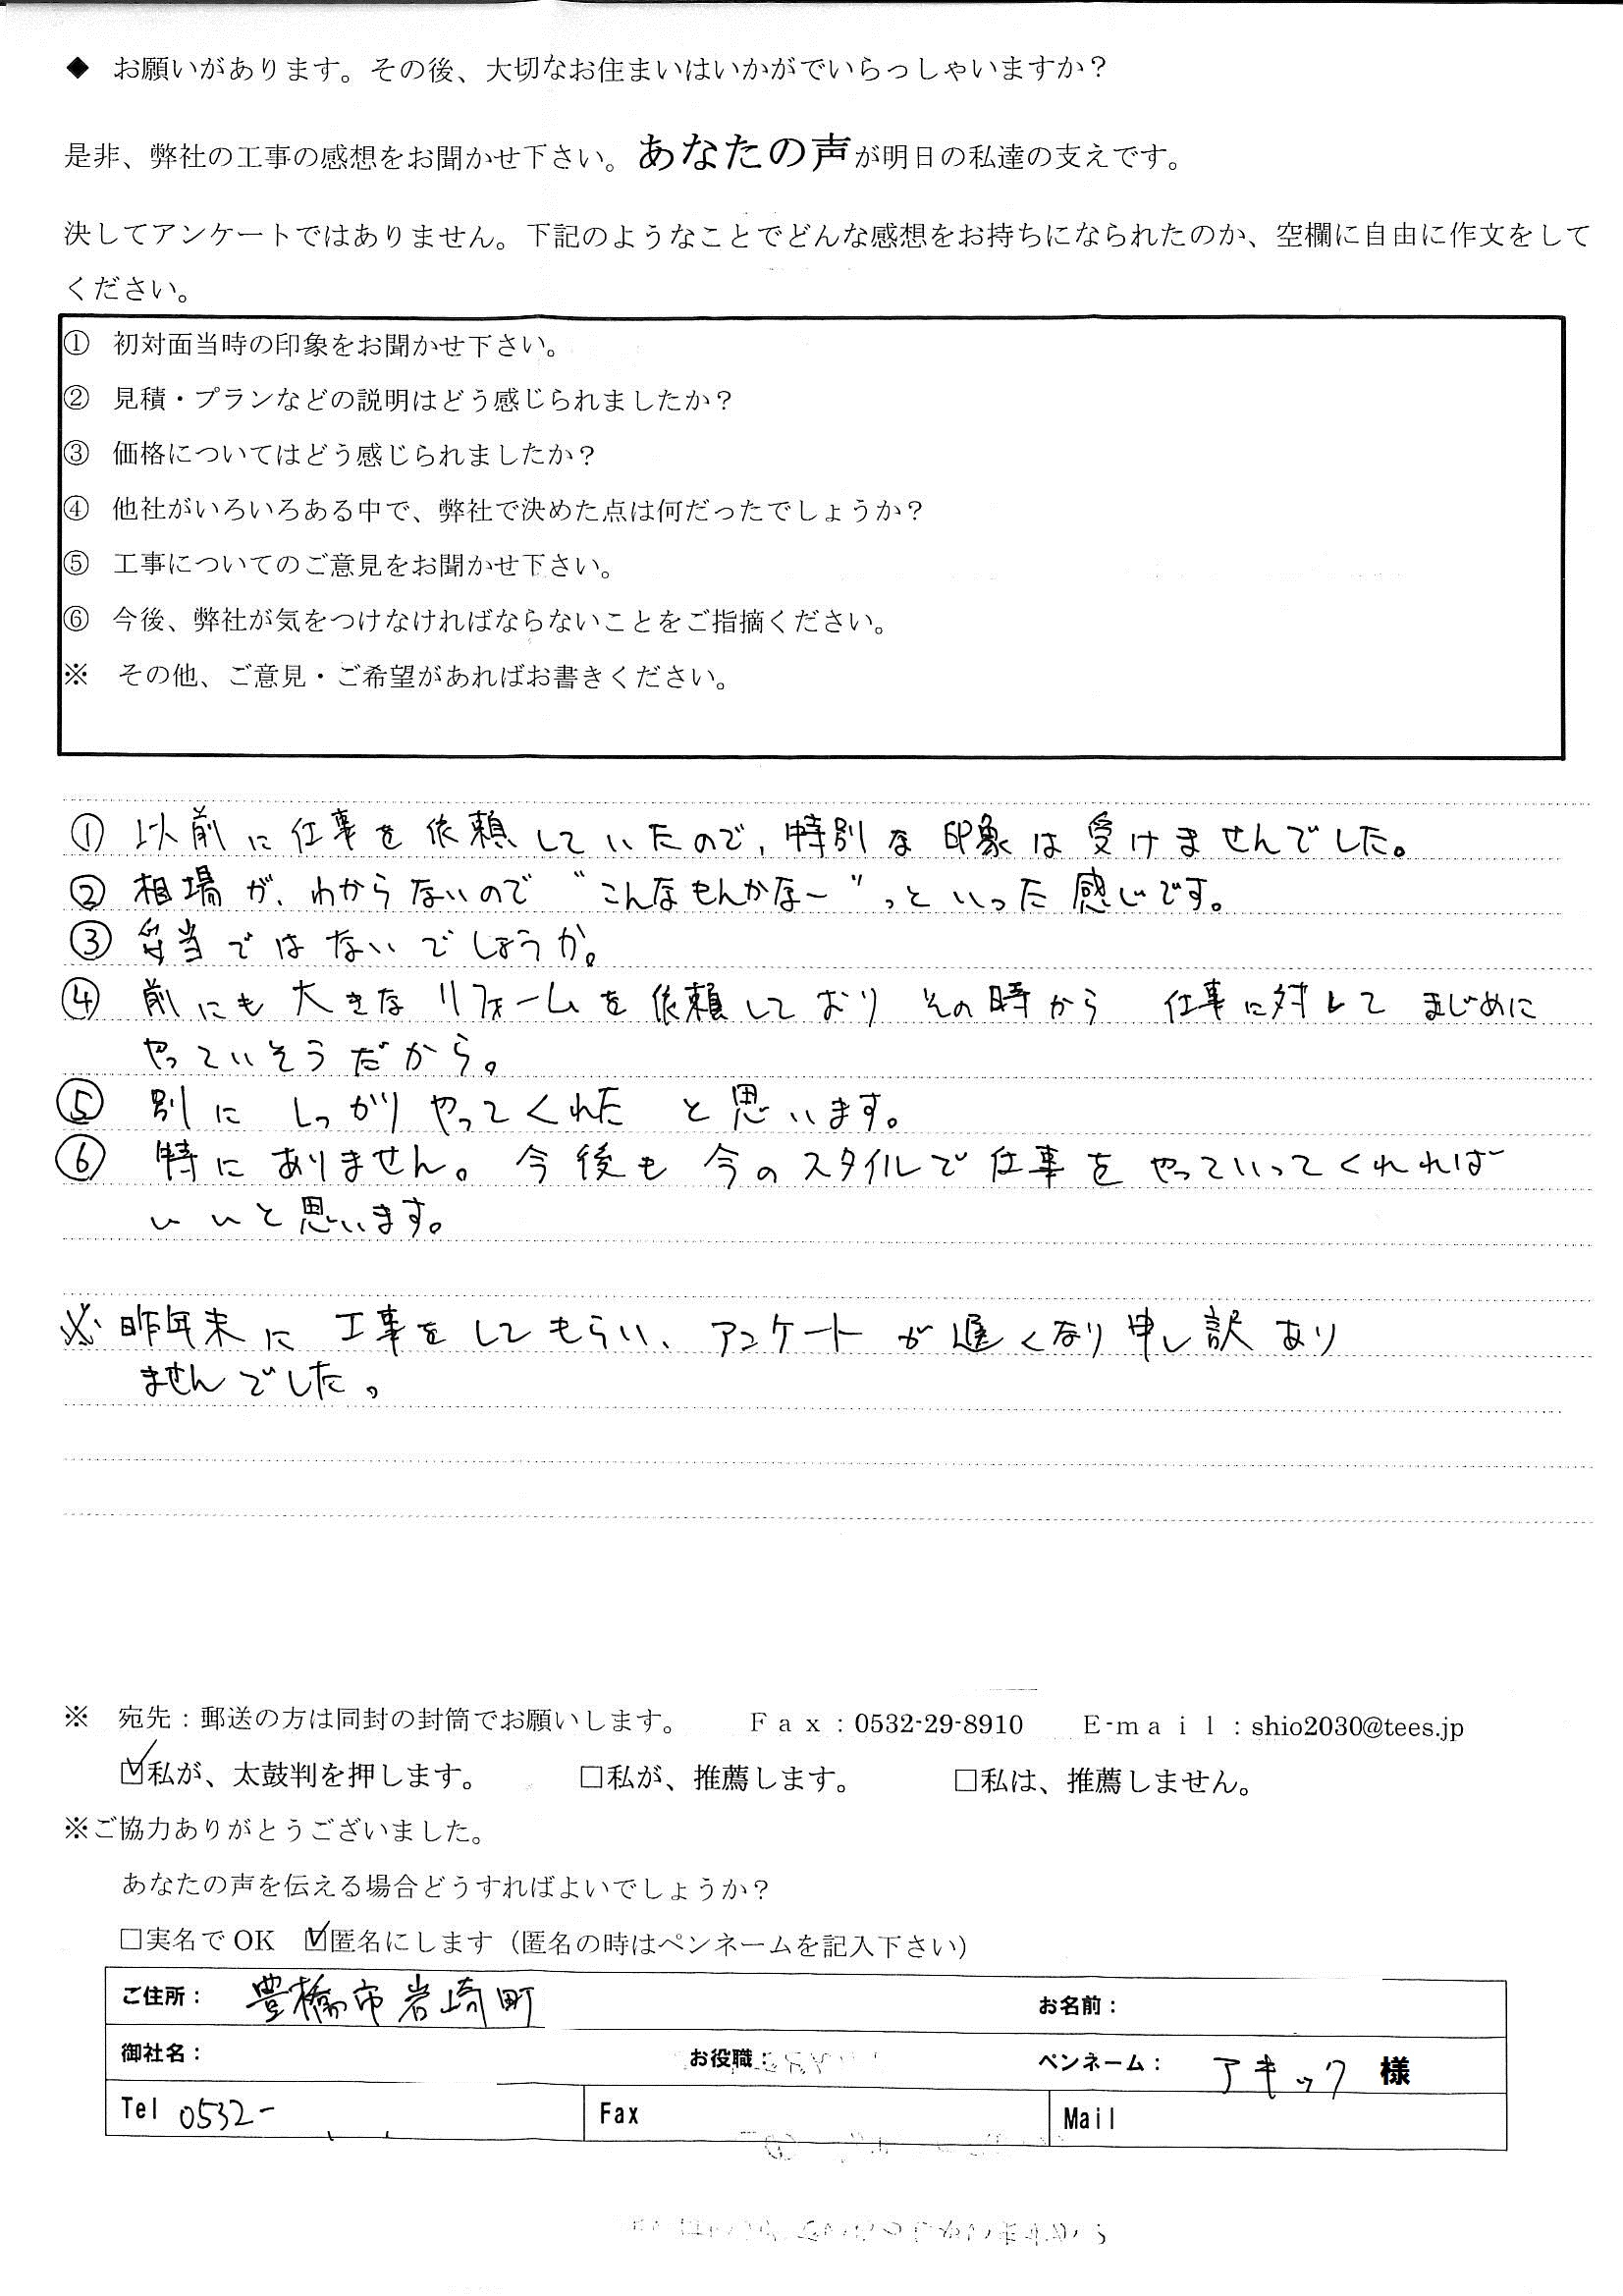 ◆ お願いがあります。その後、大切なお住まいはいかがでいらっしゃいますか？
是非、弊社の工事の感想をお聞かせ下さい。あなたの声が明日の私達の支えです。
決してアンケートではありません。下記のようなことでどんな感想をお持ちになられたのか、空欄に自由に作文をして
ください。
① 初対面当時の印象をお聞かせ下さい。
② 見積・プランなどの説明はどう感じられましたか？
③ 価格についてはどう感じられましたか？
④ 他社がいろいろある中で、弊社で決めた点は何だったでしょうか？
⑤ 工事についてのご意見をお聞かせ下さい。
⑥ 今後、弊社が気をつけなければならないことをご指摘ください。
※ その他、ご意見・ご希望があればお書きください。
① 以前に仕事を依頼していたので、特別な印象は受けませんでした。
② 相場が、わからないので〝こんなもんかなー〟っといった感じです。
③ 妥当ではないでしょうか。
④ 前にも大きなリフォームを依頼しており その時から 仕事に対して まじめに
やっていそうだから。
⑤ 別に しっかりやってくれた と思います。
⑥ 特にありません。今後も今のスタイルで仕事をやっていってくれれば
いいと思います。
※ 昨年末に工事をしてもらい、アンケートが遅くなり申し訳あり
ませんでした。
※ 宛先：郵送の方は同封の封筒でお願いします。 Ｆａｘ：0532-29-8910 Ｅ-ｍａｉｌ：shio2030@tees.jp
☑私が、太鼓判を押します。 □私が、推薦します。 □私は、推薦しません。
※ご協力ありがとうございました。
あなたの声を伝える場合どうすればよいでしょうか？
□実名でOK ☑匿名にします（匿名の時はペンネームを記入下さい）
ご住所： 豊橋市岩崎町 お名前：
御社名： お役職： ペンネーム： アキック 様
Tel 0532- Fax Mail